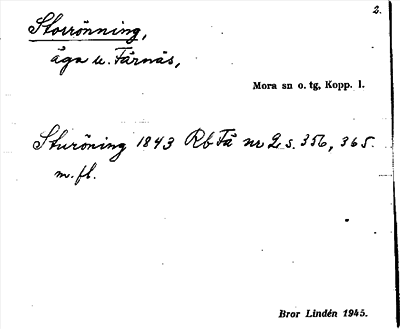 2.
Storrönning,
äga u. Färnäs,
Mora sn o. tg, Kopp. l.
Sturöning 1843 Rb Få nr 2 s. 356, 365.
m. fl.
Bror Lindén 1945.